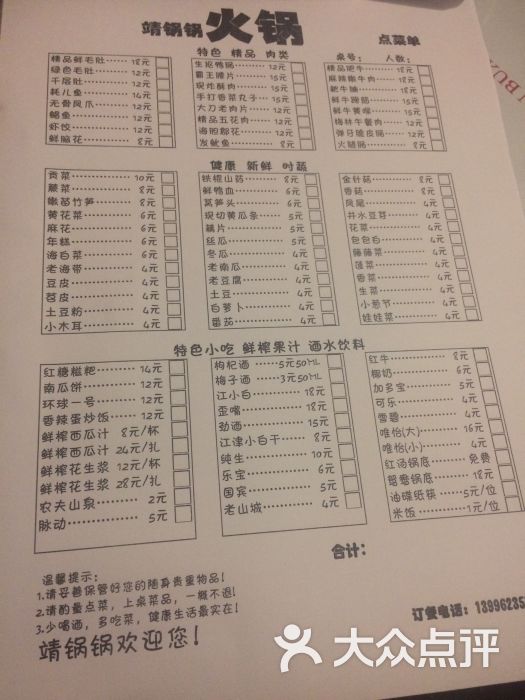 靖锅锅 火锅 点菜单
特色 精品 肉类
桌号: 人数:
精品鲜毛肚 18元
绿色毛肚 12元
千层肚 12元
耗儿鱼 14元
无骨凤爪 12元
鳝鱼 12元
虾饺 12元
鲜脑花 8元
生抠鸭肠 12元
霸王腰片 15元
现炸酥肉 15元
手打香菜丸子 15元
大刀老肉片 12元
精品五花肉 12元
海胆郡花 12元
发鱿鱼 8元
精品肥牛 18元
麻辣嫩牛肉 18元
鲜牛黄喉 15元
梅林午餐肉 12元
弹牙脆皮肠 12元
火腿肠 8元
健康 新鲜 时蔬
贡菜 10元
蕨菜 8元
嫩苗竹笋 8元
黄花菜 6元
麻花 6元
年糕 6元
海白菜 6元
老海带 4元
豆皮 4元
苕皮 4元
土豆粉 4元
小木耳 4元
铁棍山药 8元
鲜鸭血 6元
莴笋头 6元
现切黄瓜条 5元
藕片 5元
丝瓜 5元
冬瓜 4元
老南瓜 4元
老豆腐 4元
土豆 4元
白萝卜 4元
番茄 4元
金针菇 8元
香菇 8元
凤尾 4元
井水豆芽 4元
花菜 4元
包包白 4元
藤藤菜 4元
菠菜 4元
香菜 4元
生菜 4元
小葱节 4元
娃娃菜 4元
特色小吃 鲜榨果汁 酒水饮料
红糖糍粑 14元
南瓜饼 12元
环球一号 12元
香辣蛋炒饭 12元
鲜榨西瓜汁 8元/杯
鲜榨西瓜汁 24元/扎
鲜榨花生浆 12元/杯
鲜榨花生浆 28元/扎
农夫山泉 2元
脉动 5元
枸杞酒 5元50ML
梅子酒 3元50ML
江小白 18元
歪嘴 18元
劲酒 15元
江津小白干 8元
纯生 10元
乐宝 6元
国宾 5元
老山城 4元
红牛 8元
椰奶 6元
加多宝 5元
可乐 4元
雪碧 4元
唯怡(大) 16元
唯怡(小) 4元
红汤锅底 免费
鸳鸯锅底 18元
油碟纸筷 5元/位
米饭 1元/位
合计:
温馨提示:
1.请妥善保管好您的随身贵重物品!
2.请酌量点菜,上桌菜品,一概不退!
3.少喝酒,多吃菜,健康生活最实在!
靖锅锅欢迎您!
订餐电话:139962353
大众点评